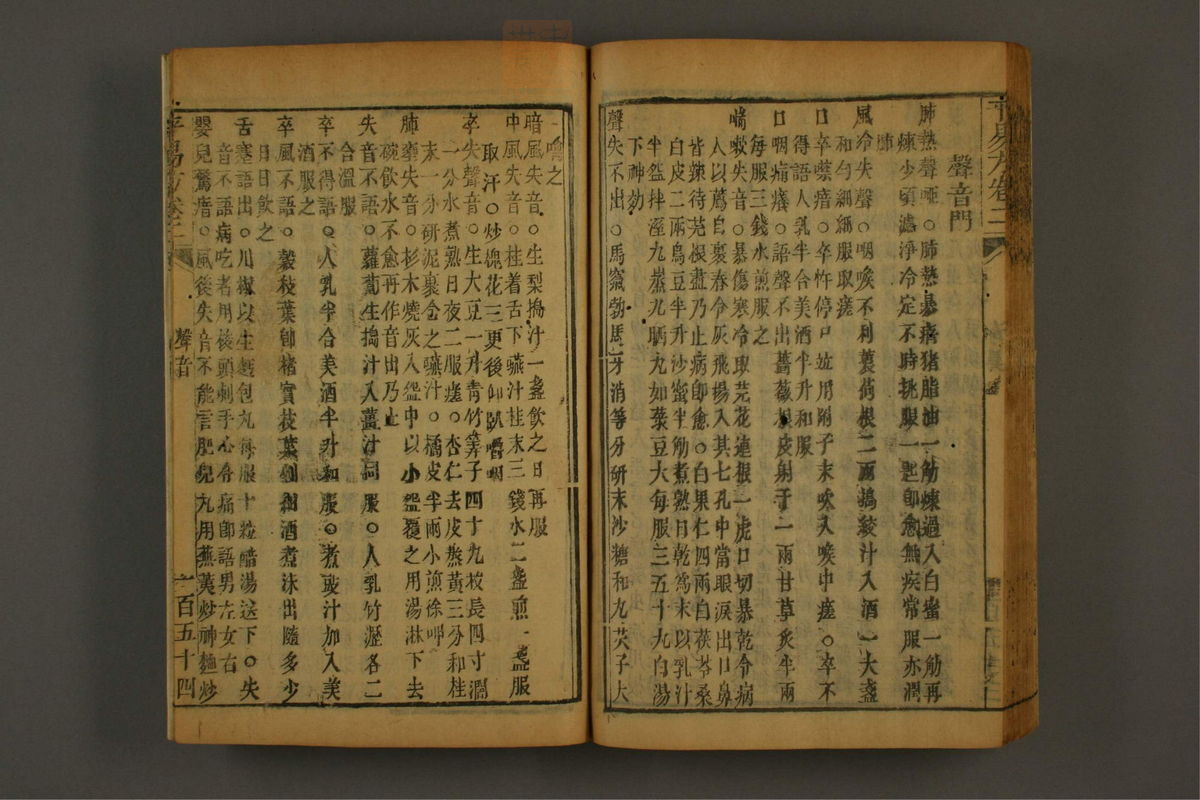 聲音門
肺熱聲啞○肺熱暴瘖猪脂油一觔煉過入白蜜一觔再
煉少頃濾淨冷定不時挑服一匙卽愈無疾常服亦潤
肺
風冷失聲○咽喉不利蘘荷根二兩搗絞汁入酒一大盞
和勻細細服取瘥
口卒噤瘖○卒忤停尸竝用附子末吹入喉中瘥○卒不
得語人乳半合美酒半升和服
口咽痛癢○語聲不出薔薇根皮射干一兩甘草炙半兩
每服三錢水煎服之
喘嗽失音○暴傷寒冷取芫花連根一虎口切暴乾令病
人以薦自裹舂令灰飛揚入其七孔中當眼淚出口鼻
皆辣待芫根盡乃止病卽愈○白果仁四兩白茯苓桑
白皮二兩烏豆半升沙蜜半觔煮熟日乾爲末以乳汁
半盌拌溼九蒸九晒丸如菉豆大每服三五十丸白湯
下神効
聲失不出○馬窠勃馬牙消等分研末沙糖和丸芡子大
噙之
暗風失音○生梨搗汁一盞飲之日再服
中風失音○桂着舌下嚥汁桂末三錢水二盞煎一盞服
取汗○炒槐花三更後仰臥嚼咽
卒失聲音○生大豆一升青竹筭子四十九枚長四寸濶
一分水煮熟日夜二服瘥○杏仁去皮熬黃三分和桂
末一分研泥裹含之嚥汁○橘皮半兩小煎徐呷
肺壅失音○杉木燒灰入盌中以小盌覆之用湯淋下去
碗飲水不愈再作音出乃止
失音不語○蘿蔔生搗汁入薑汁同服○人乳竹瀝各二
合溫服
卒不得語○人乳半合美酒半升和服○煮豉汁加入美
酒服之
卒風不語○穀枝葉卽楮實枝葉剉細酒煮沫出隨多少
日日飲之
舌蹇語出○川椒以生麪包丸每服十粒醋湯送下○失
音不語病吃者用後頭刺手心令痛卽語男左女右
嬰兒驚瘖○風後失音不能言肥兒丸用蕪荑炒神麯炒
平易方卷二
聲音
一百五十四